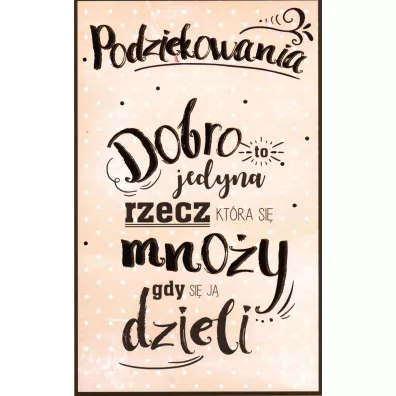 Podziękowania
Dobro to
jedyna
rzecz KTÓRA SIĘ
mnoży
gdy SIĘ JĄ
dzieli